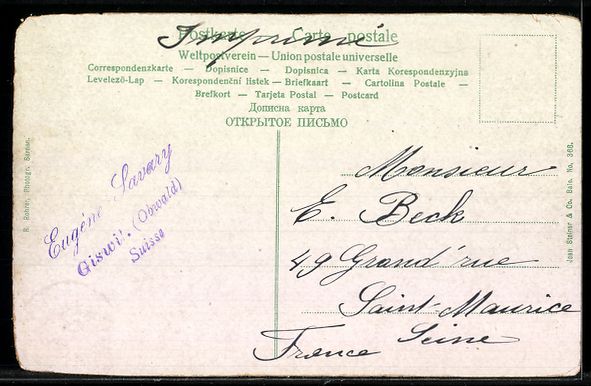 Postkarte Carte postale
Imprimé
Weltpostverein — Union postale universelle
Correspondenzkarte — Dopisnice — Dopisnica — Karta Korespondenzyjna
Levelezö-Lap — Korespondenční listek — Briefkaart — Cartolina Postale —
Brefkort — Tarjeta Postal — Postcard
Дописна карта
ОТКРЫТОЕ ПИСЬМО
R. Rohrer, Photogr. Sarnen.
Eugène Savary
Giswil. (Obwald)
Suisse
Monsieur
E. Beck
49 Grand'rue
Saint-Maurice
Seine
France
Jean Steiner & Co. Bale. No. 366.